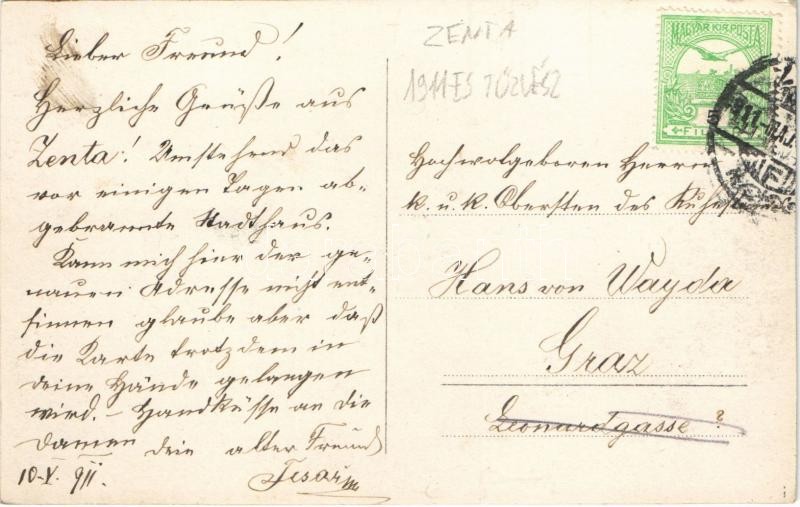 Lieber Freund!
Herzliche Grüße aus
Zenta! Umstehend das
vor einigen Tagen ab-
gebrannte Stadthaus.
Kann mich hier der ge-
nauen Adresse nicht ent-
sinnen glaube aber daß
die Karte trotzdem in
deine Hände gelangen
wird. – Handküsse an die
Damen dein alter Freund
10.V. 911.
ZENTA
1911ES TŰZVÉSZ
MAGYAR KIR. POSTA
Hochwolgeboren Herrn
k. u. k. Obersten des
Hans von Wayda
Graz
Leonardgasse?